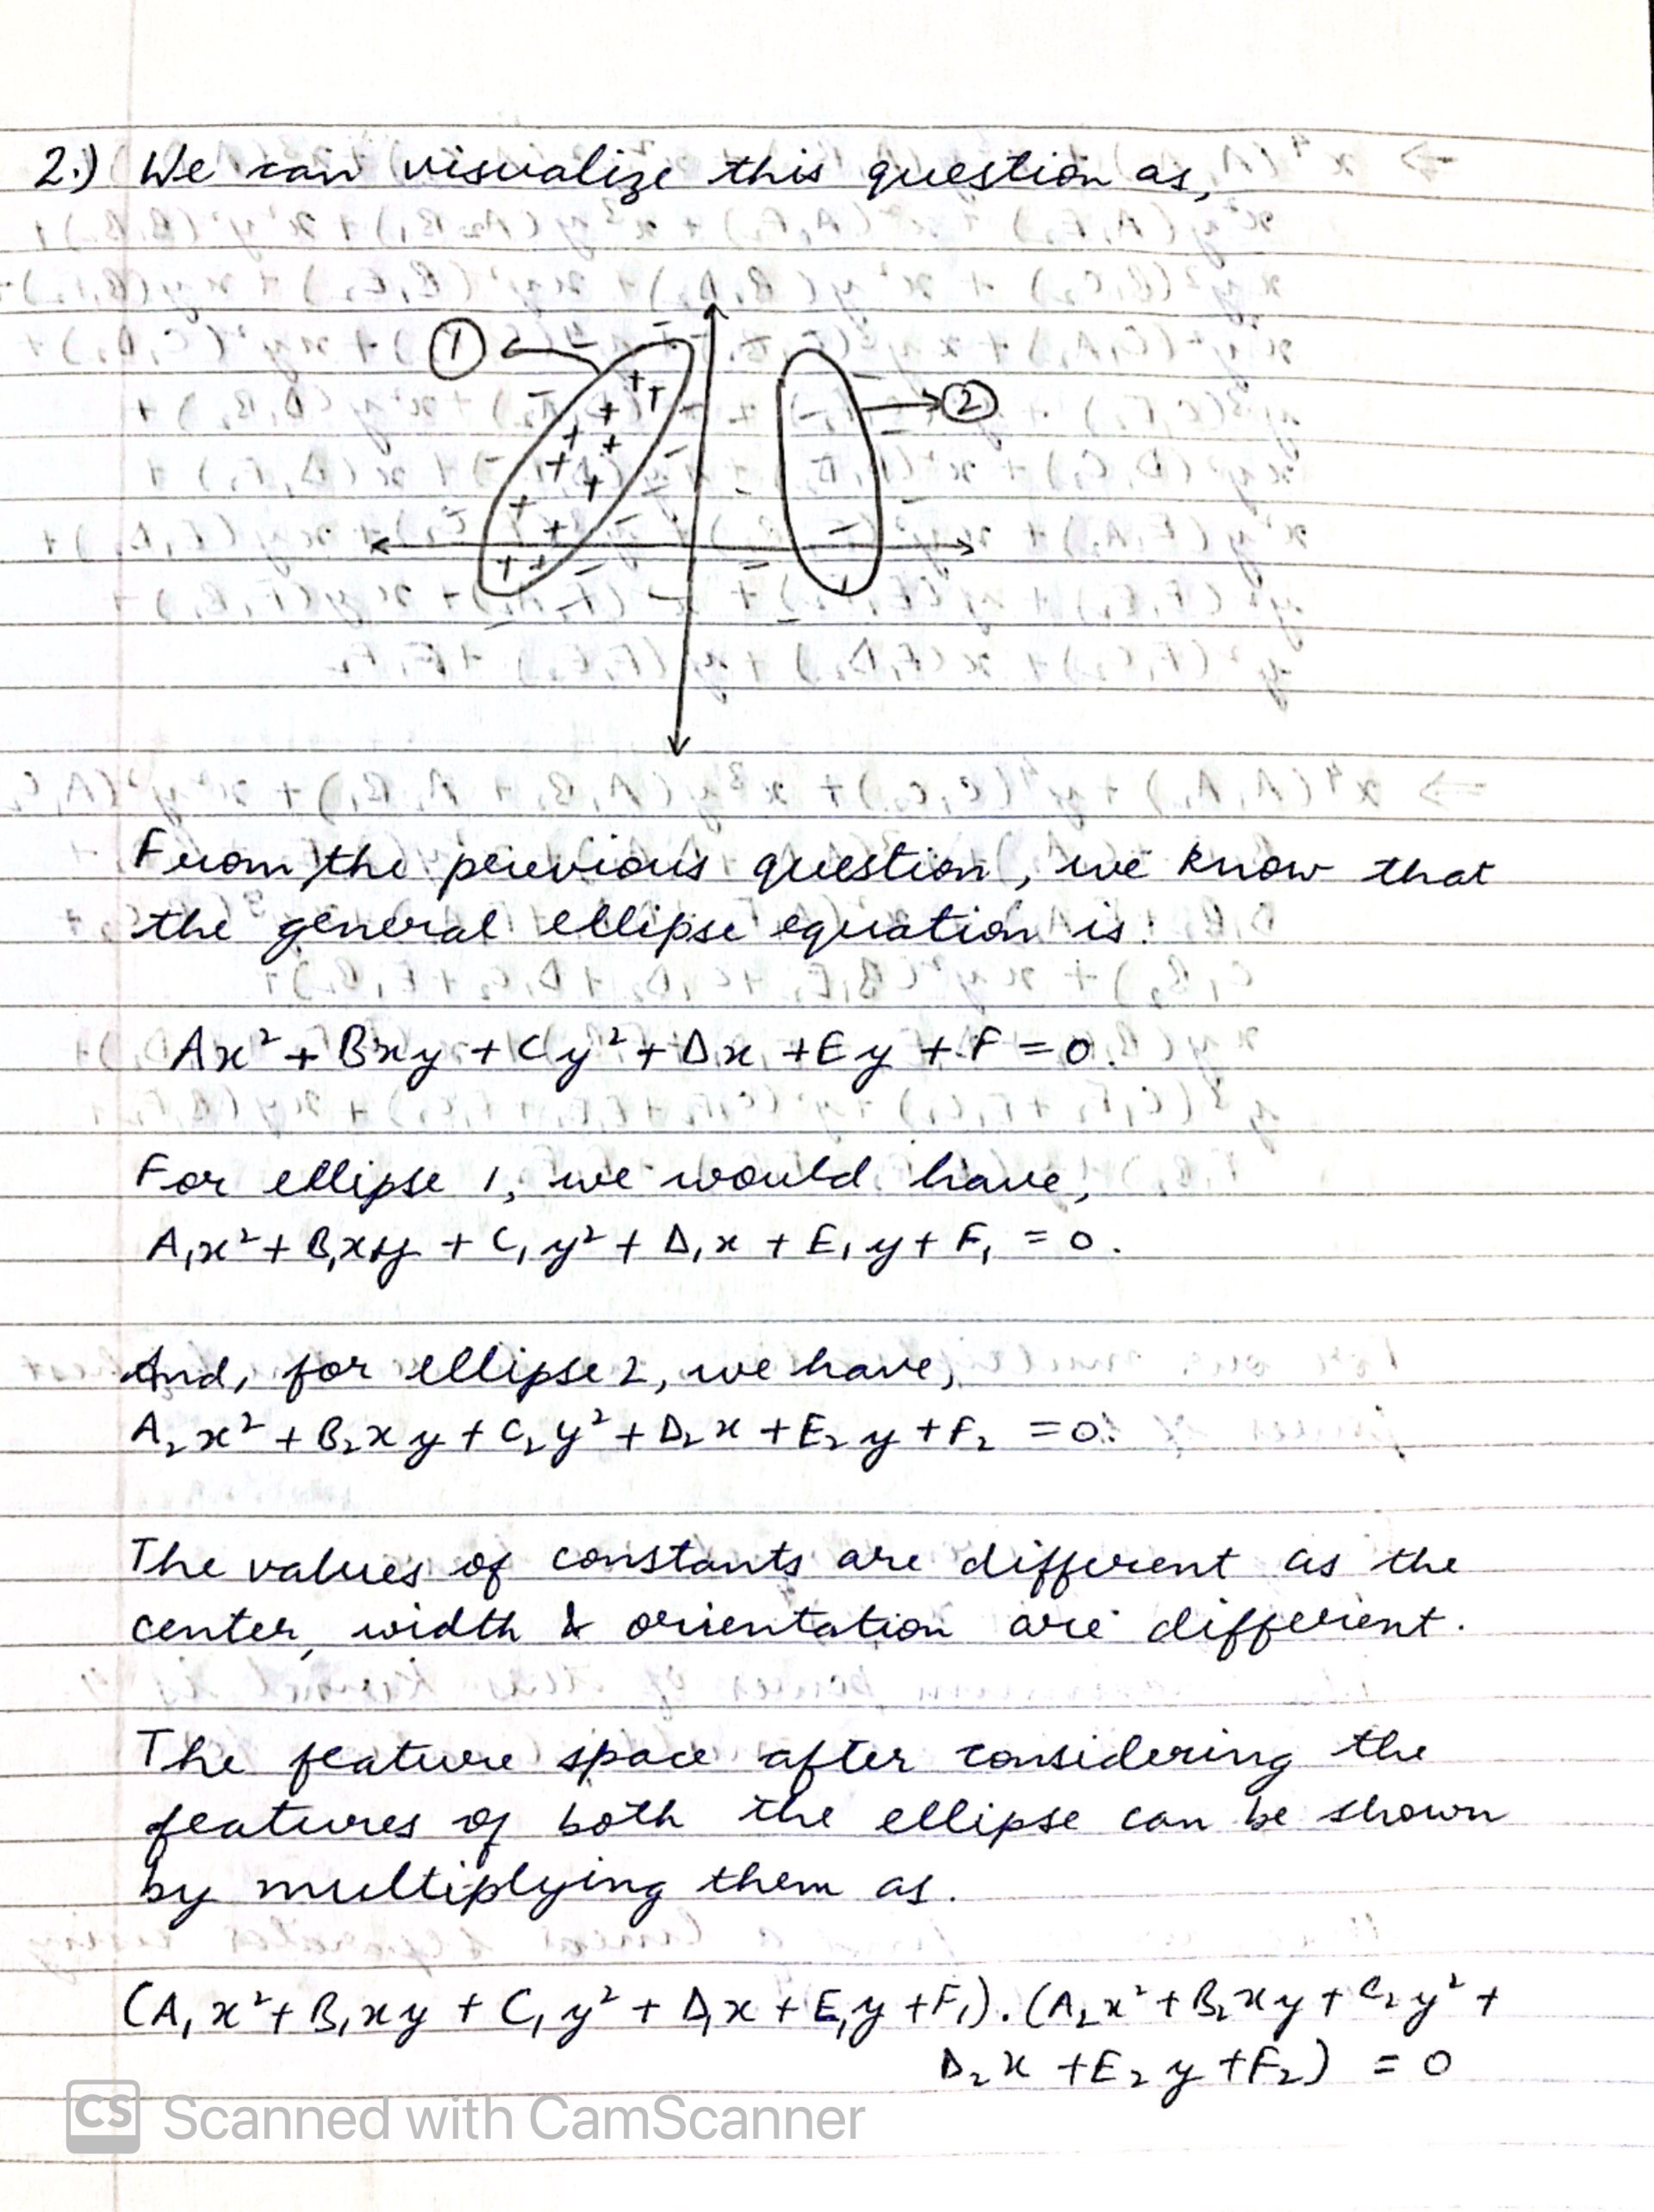 2.) We can visualize this question as,
1
2
From the previous question, we know that
the general ellipse equation is:
Ax² + Bxy + Cy² + Dx + Ey + F = 0.
For ellipse 1, we would have,
A₁x² + B₁xy + C₁y² + D₁x + E₁y + F₁ = 0.
And, for ellipse 2, we have,
A₂x² + B₂xy + C₂y² + D₂x + E₂y + F₂ = 0.
The values of constants are different as the
center, width & orientation are different.
The feature space after considering the
features of both the ellipse can be shown
by multiplying them as.
(A₁x² + B₁xy + C₁y² + D₁x + E₁y + F₁).(A₂x² + B₂xy + C₂y² +
D₂x + E₂y + F₂) = 0
CS Scanned with CamScanner